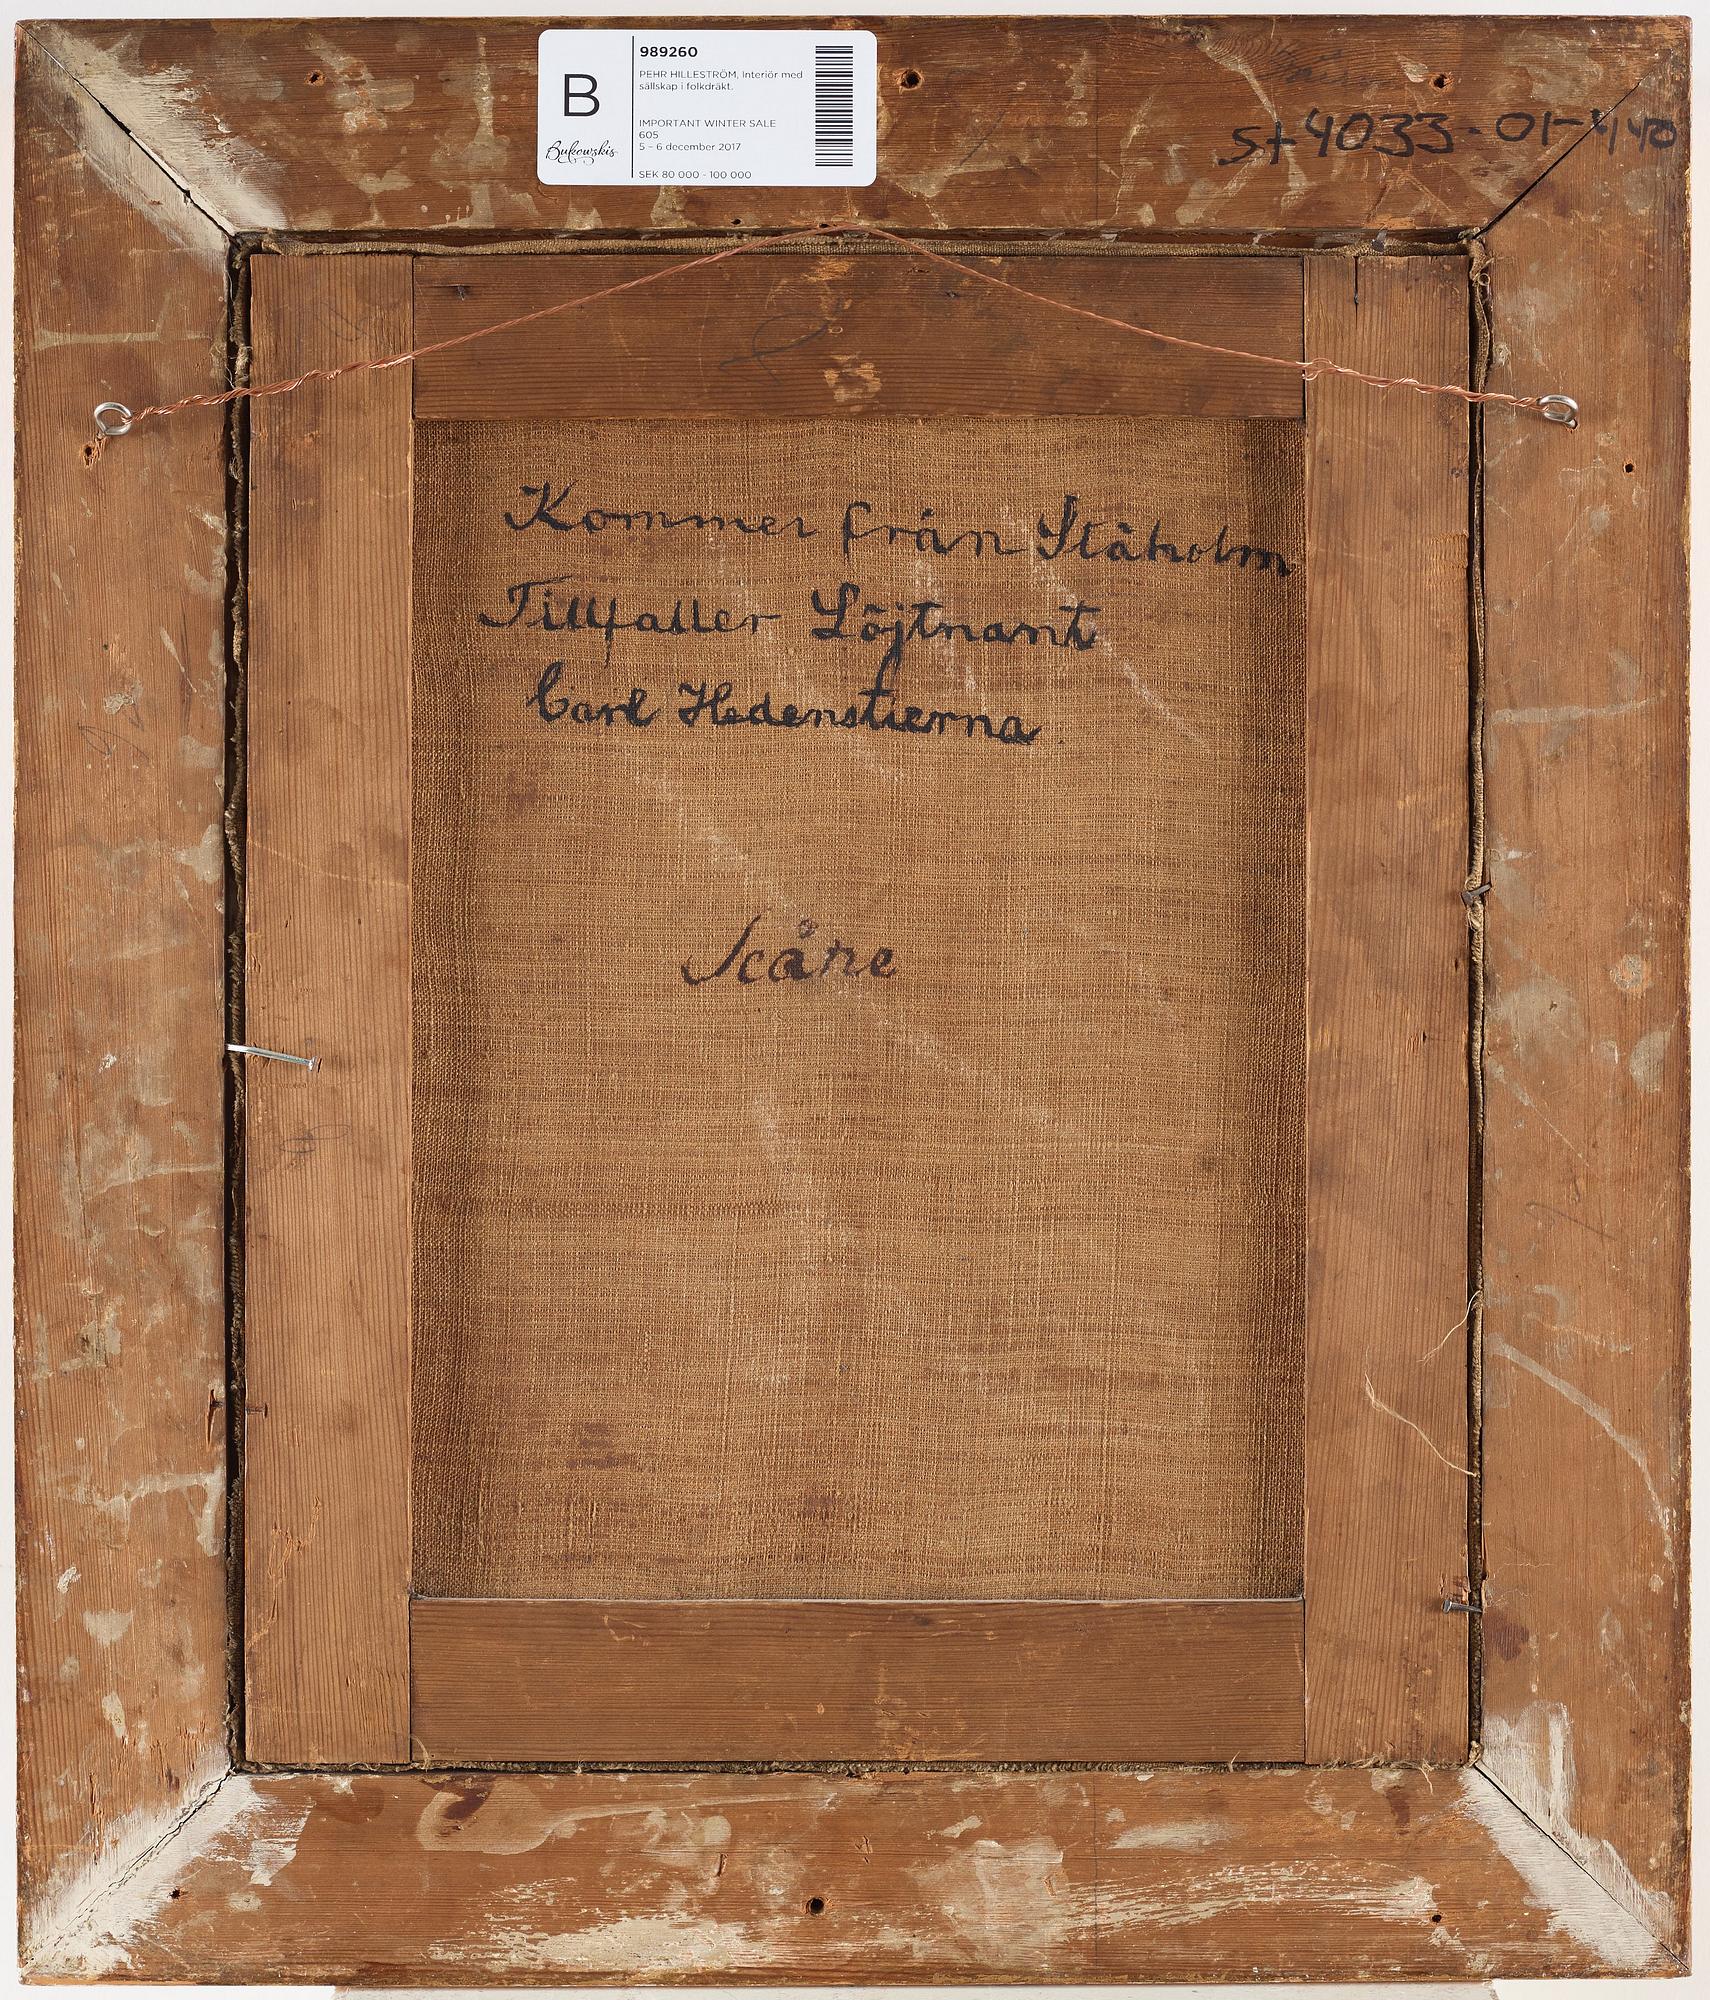 B
Bukowskis
989260
PEHR HILLESTRÖM, Interiör med
sällskap i folkdräkt.
IMPORTANT WINTER SALE
605
5 – 6 december 2017
SEK 80 000 - 100 000
St 4033-01-440
Kommer från Stäholm
Tillfaller Löjtnant
Carl Hedenstierna
Scåne